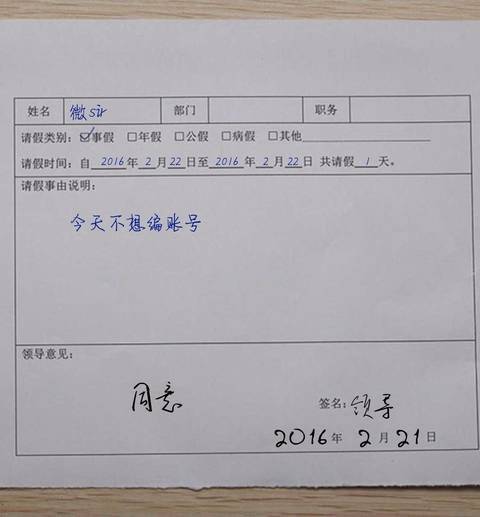 姓名 微sir 部门 职务
请假类别: ☑事假 □年假 □公假 □病假 □其他
请假时间: 自 2016 年 2 月 22 日至 2016 年 2 月 22 日 共请假 1 天。
请假事由说明:
今天不想编账号
领导意见:
同意 签名: 领导
2016年 2 月 21 日